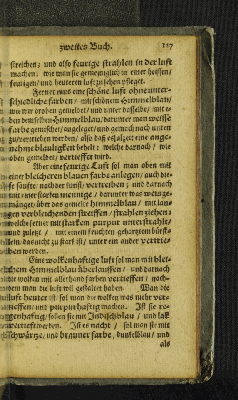 zweites Buch. 127
streichen; und also feurige strahlen in der luft
machen: wie man sie gemeiniglich in einer heissen/
feurigen/ und heuteren luft zu sehen pfleget.
Ferner muß eine schöne luft ohne unter-
schiedliche farben/ mit schönem Himmelblau/
wie wir droben gemeldet/ und unter dasselbe/ mit
dem Himmelblau/ darunter man weisse
farbe gemischet/ angeleget/ und gemachmach unten
zu vertrieben werden/ also daß es alzeit eine ange-
nehme blauligkeit behelt: welche darnach/ wie
oben gemeldet/ vertieffet wird.
Aber eine feurige Luft sol man oben mit
einer bleicheren blauen farbe anlegen/ auch die-
sänfte/ nach der kunst/ vertreiben; und darnach
mit einer starken mennige/ darunter was weis ge-
menget/ über das gemelte Himmelblau/ mit lan-
gen verbleichenden streiffen/ strahlen ziehen;
welche ferner mit starken purpur unterstrahlt/
und zuletzt/ mit einem feuchten gehartztem bürst-
lein/ da es nicht zu stark ist/ unter ein ander vertrie-
ben werden.
Eine wolkenhaftige luft sol man mit blei-
chem Himmelblau überlauffen/ und darnach
die wolken mit allerhand farben vertieffen/ nach-
dem man die luft wil gestaltet haben. Wan die
luft heuter ist/ sol man die wolken was mehr ver-
tieffen/ und purpurhaftig machen. Ist sie re-
genhaftig/ sollen sie mit Indischblau/ und lak
vertieft werden. Ist es nacht/ sol man sie mit
schwärtze/ und brauner farbe/ dunkelblau/ und
als